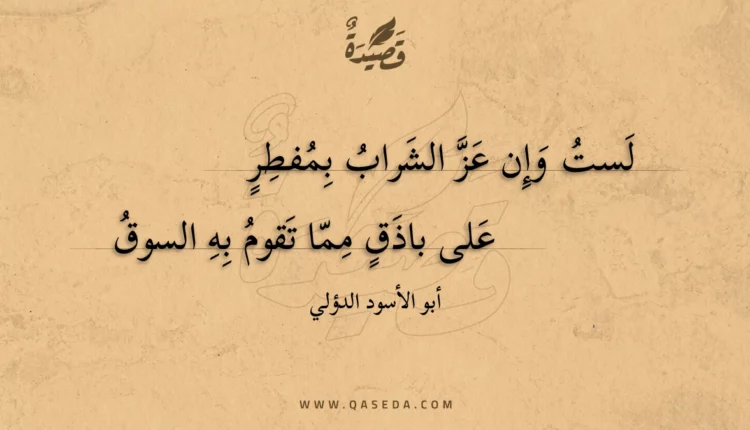 قَصِيدَةٌ
لَستُ وَإِن عَزَّ الشَرابُ بِمُفطِرٍ
عَلى باذَقٍ مِمّا تَقومُ بِهِ السوقُ
أبو الأسود الدؤلي
WWW.QASEDA.COM